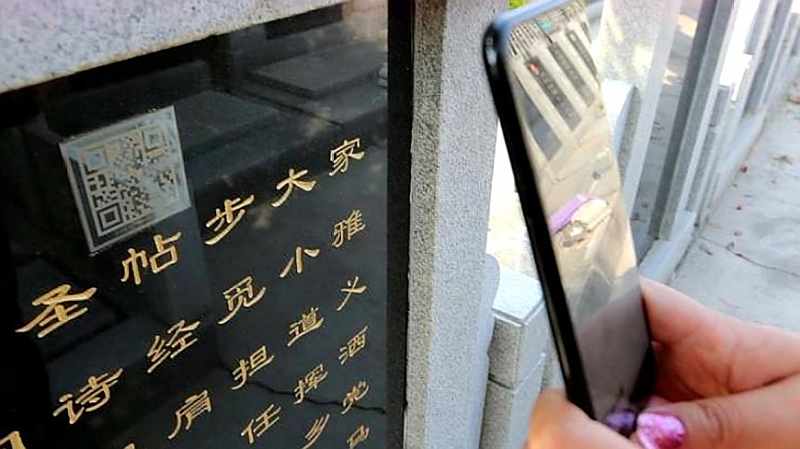 圣帖步大家
诗经觅小雅
肩担道义
任挥洒
乡